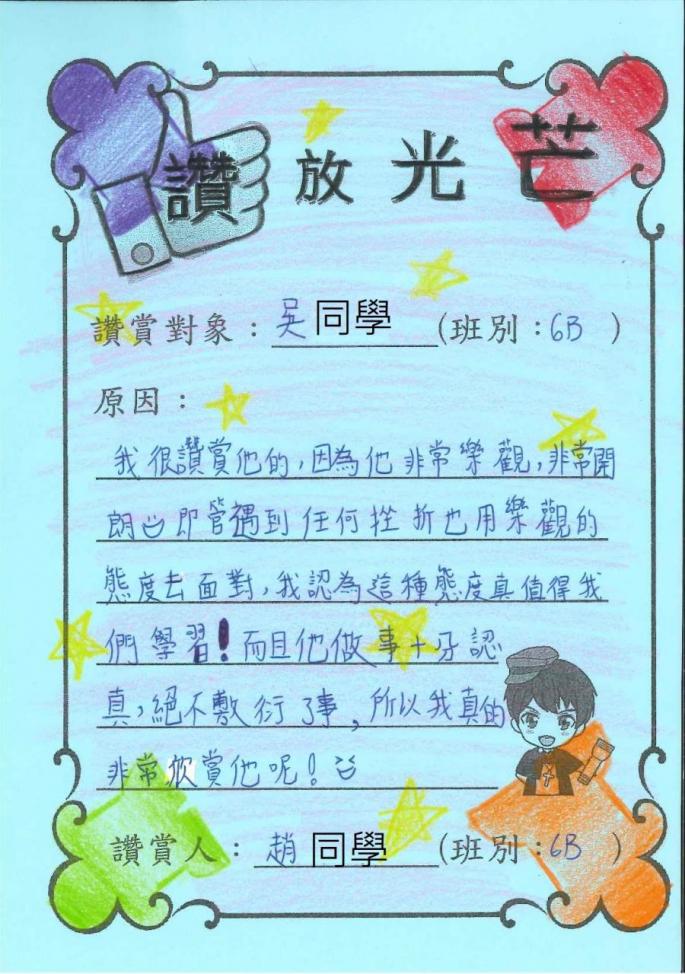 讚放光芒
讚賞對象：吳同學(班別：6B)
原因：
我很讚賞他的，因為他非常樂觀，非常開
朗 即管遇到任何挫折也用樂觀的
態度去面對，我認為這種態度真值得我
們學習！而且他做事十分認
真，絕不敷衍了事，所以我真的
非常欣賞他呢！
讚賞人：趙同學(班別：6B)